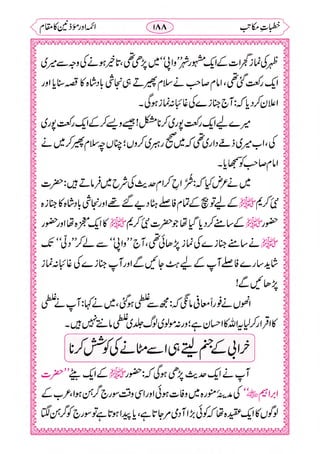 خطباتِ مکاتب ۱۸۸ ائمہ اور مؤذنین کا مقام
ظہر کی نماز گجرات کے ایک مشہور شہر ”واپی“ میں پڑھی تھی، تاخیر ہونے کی وجہ سے میری
ایک رکعت گئی تھی، امام صاحب نے سلام پھیرتے ہی نجاشی بادشاہ کا قصہ سنایا اور
اعلان کر دیا کہ: آج نمازِ جنازے کی غائبانہ نماز ہوگی۔
میرے لیے ایک رکعت پوری کرنا مشکل! جیسے ویسے کر کے ایک رکعت پوری
کی، اب میری ذمے داری تھی کہ میں صحیح رہبری کروں؛ چناں چہ سلام پھیر کر میں نے
امام صاحب کو سمجھایا۔
میں نے عرض کیا کہ: شُرّاحِ کرام حدیث کی شرح میں فرماتے ہیں: حضرت
نبی کریم ﷺ کے لیے بیچ کے تمام فاصلے ہٹا دیے گئے تھے اور نجاشی بادشاہ کا جنازہ
حضور ﷺ کے سامنے کر دیا گیا تھا جو حضرت نبی کریم ﷺ کا ایک معجزہ تھا اور حضور
ﷺ نے سامنے جنازے کی نماز پڑھائی تھی، آج ”واپی“ سے لے کر ”دلی“ تک
سارے فاصلے آپ کے لیے ہٹ جائیں گے اور آپ جنازے کی غائبانہ نماز
پڑھائیں گے!
انھوں نے فوراً معافی مانگی کہ: مجھ سے غلطی ہوگئی، میں نے کہا: آپ نے غلطی
کا اقرار کر لیا یہ اللہ کا احسان ہے؛ ورنہ مولوی لوگ جلدی غلطی مانتے نہیں ہیں۔
خرابی کے جنم لیتے ہی اسے مٹانے کی کوشش کرنا
آپ نے ایک حدیث پڑھی ہوگی کہ: حضور ﷺ کے ایک بیٹے ”حضرت
ابراہیم ﷺ“ کی مدینہ منورہ میں وفات ہوئی اور اسی وقت سورج گرہن ہوا، عرب کے
لوگوں کا ایک عقیدہ تھا کہ کوئی بڑا آدمی مر جاتا ہے، یا پیدا ہوتا ہے تو سورج کو گرہن لگتا